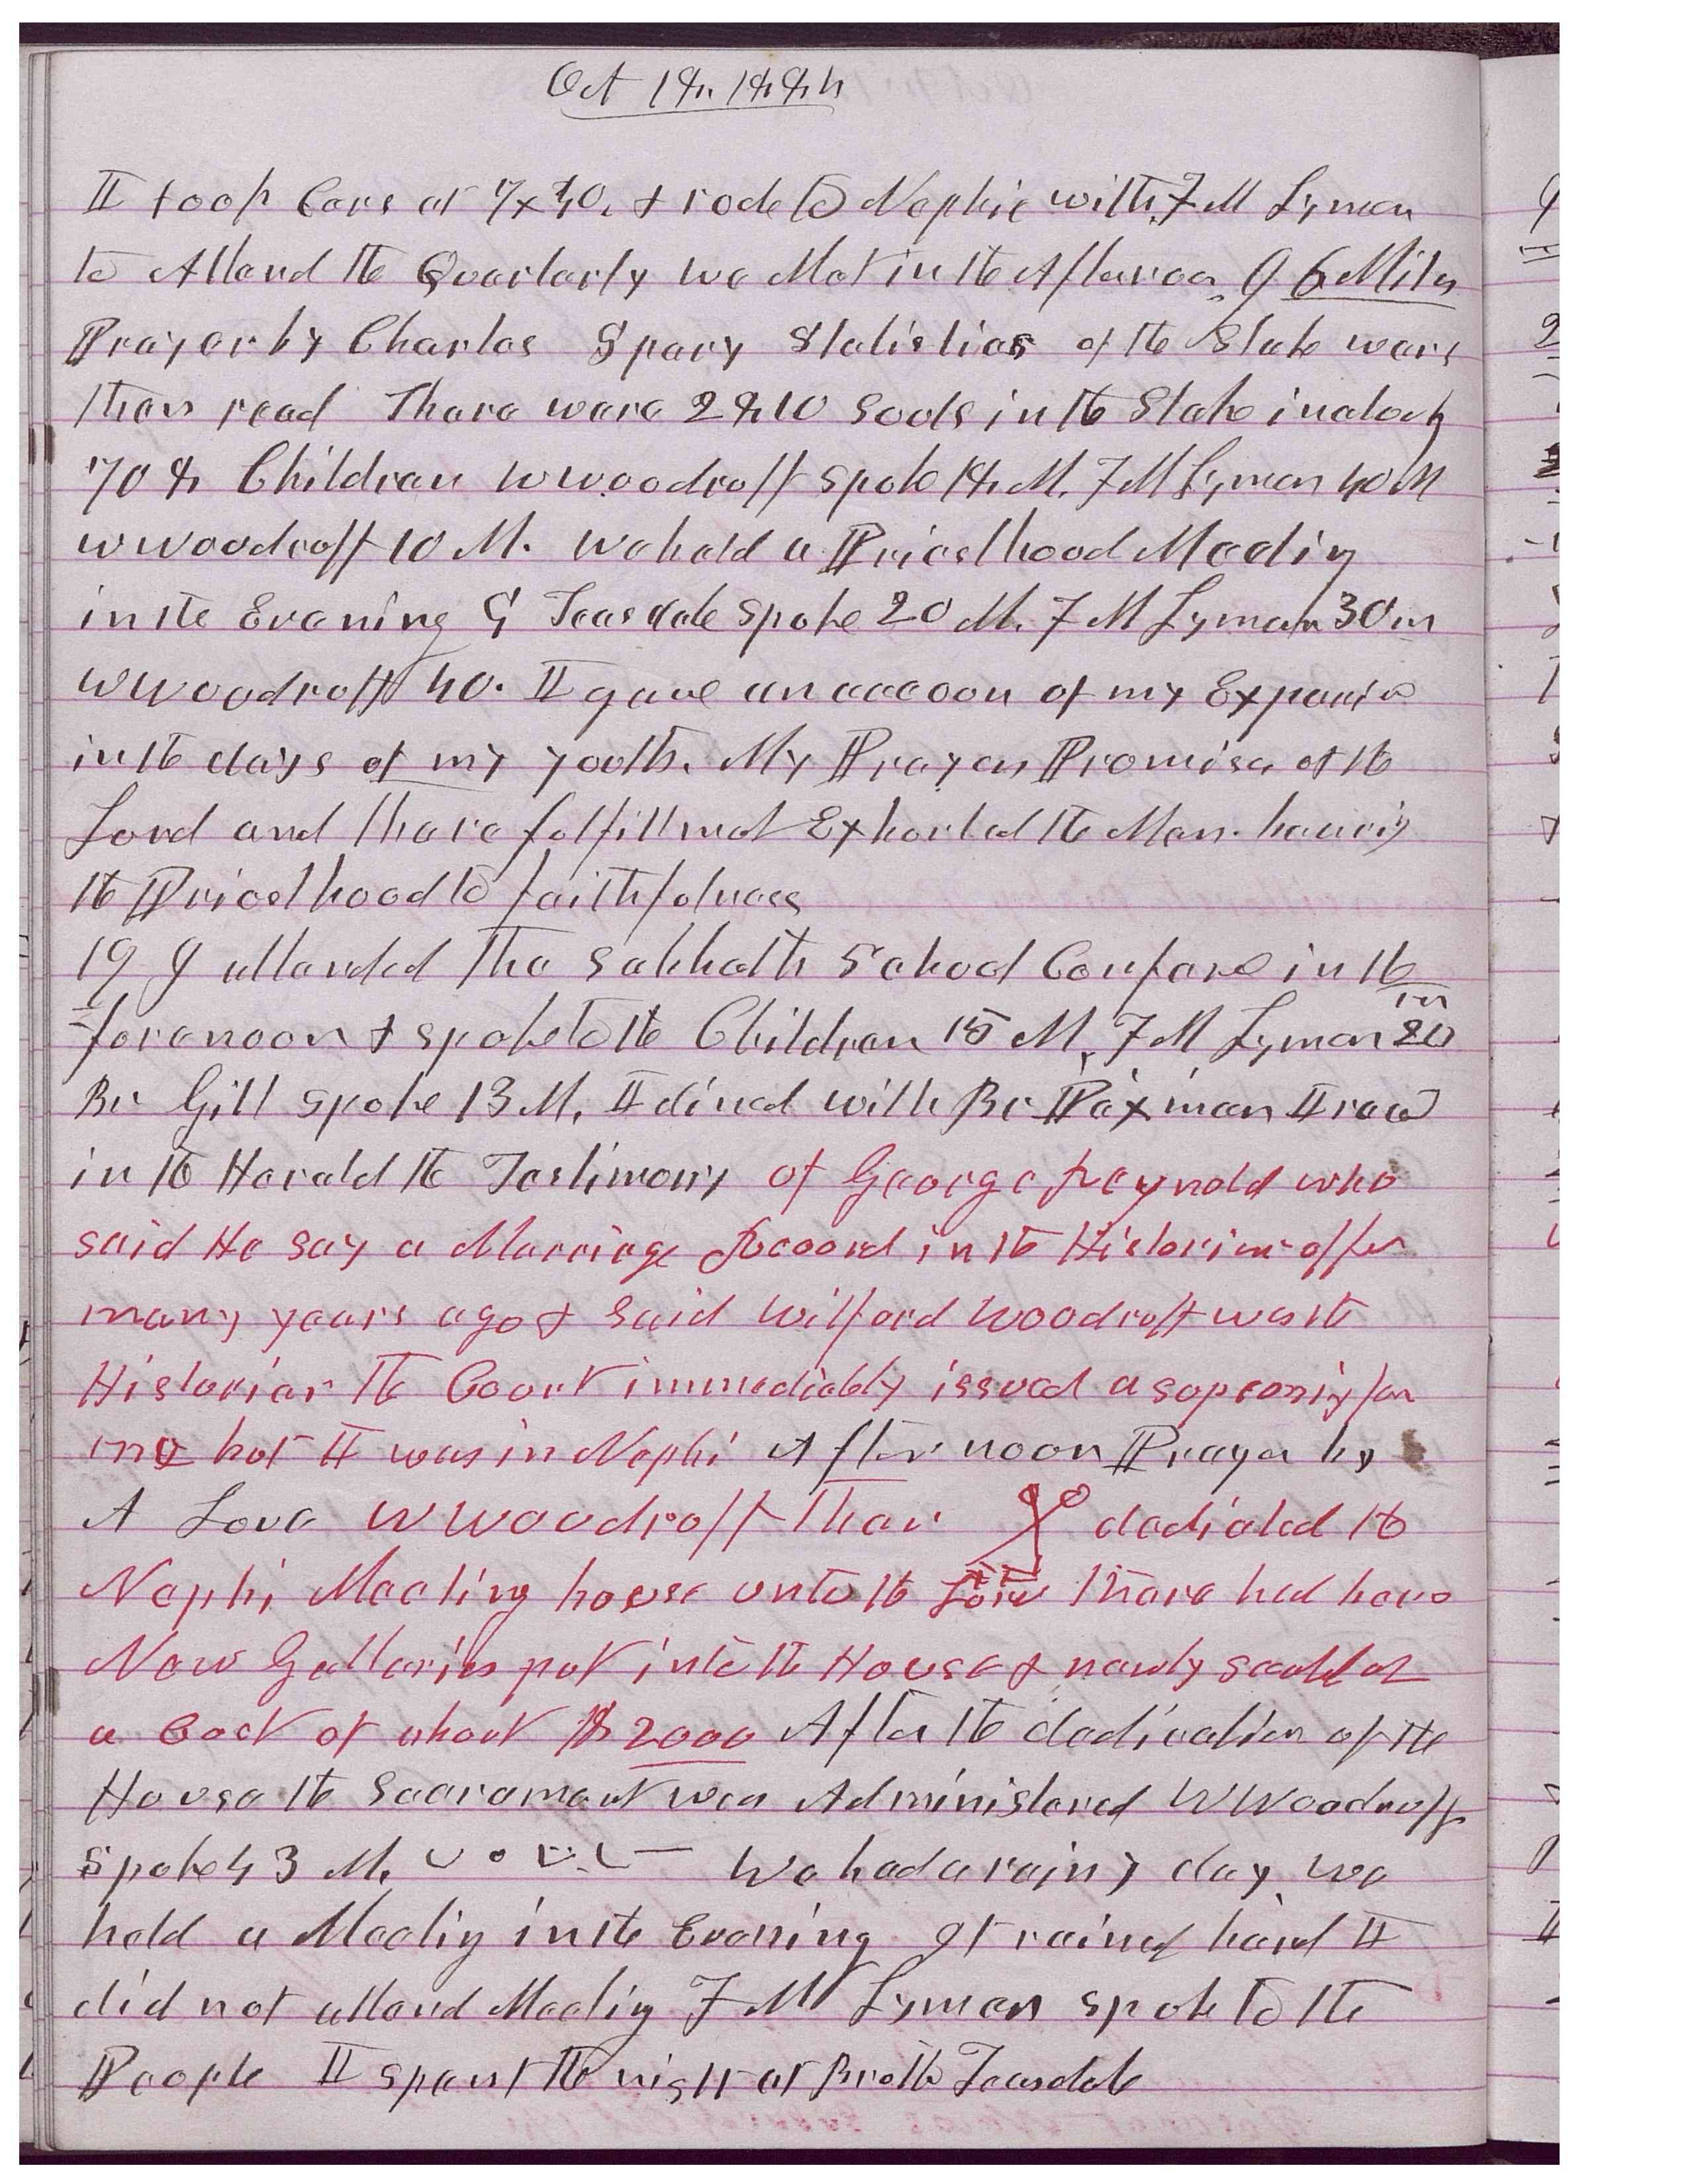 Oct 18. 1884
I took Cars at 7x40. & rode to Nephi with F M Lyman
to Attend the Quarterly we Met in the Afternoon 96 Miles
Prayer by Charles Spery Statistics of the Stake ware
then read Thare ware 2810 Souls in the Stake including
708 Children W Woodruff spoke 18 M. F M Lyman 40 M
W Woodruff 10 M. we held a Priesthood Meeting
in the Evening G Teasdale spoke 20 M. F M Lyman 30 m
W Woodruff 40. I gave an accoun of my Expereince
in the days of my youth. My Prayers Promise of the
Lord and thare fulfillmet Exhorted the Men having
the Priesthood to faithfulness
19 I attended the Sabbath School Confere in the
forenoon & spoke to the Children 15 M. F M Lyman 20 m
Br Gill spoke 13 M. I dined with Br Paxman I read
in the Herald the Testimony of George Reynold who
said He say a Marriage Record in the Historian offes
many years ago & said Wilford Woodruff was the
Historian the Court immediately issued a supeonig for
me but I was in Nephi Afternoon Prayer by
A Love W Woodruff then dedicated the
Nephi Meeting house unto the Lord thare had been
New Galleries put into the House & newly seated at
a Cost of about $2000 After the dedication of the
House the Sacrament was Administered W Woodruff
spoke 43 M. We had a rainy day we
held a Meeting in the Evening It rained hard I
did not attend Meeting F M Lyman spoke to the
People I spent the night at Broth Teasdale